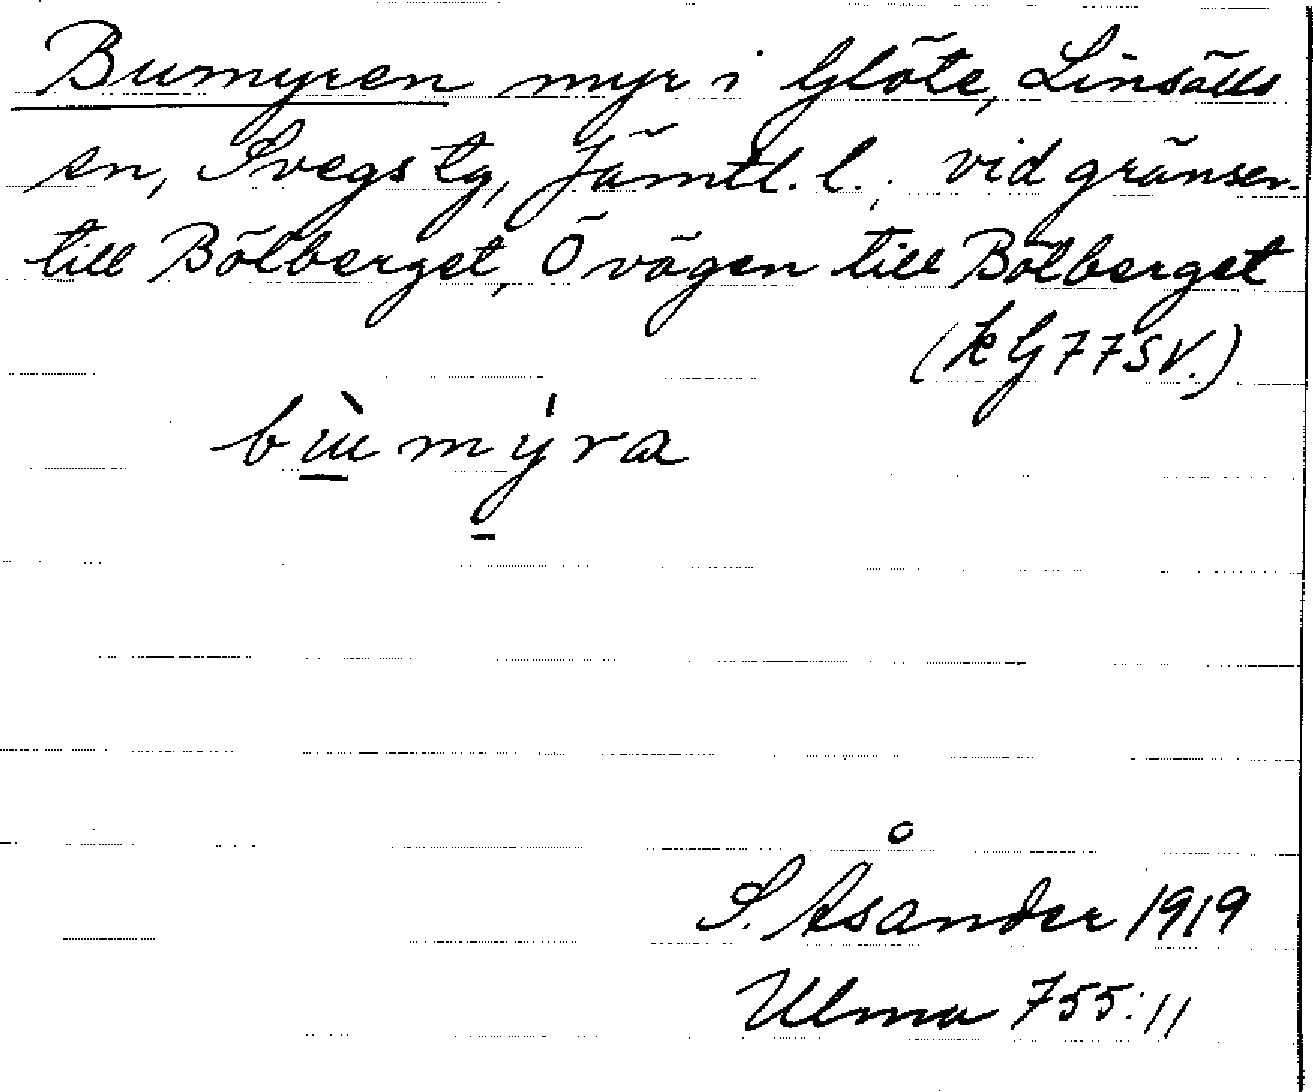 Bumyren myr i Glöte, Linsälls
sn, Svegs tg, Jämtl. l., vid gränsen
till Bölberget, Ö vägen till Bölberget
(k G 77 SV.)
S. Åsander 1919
Ulma 755:11